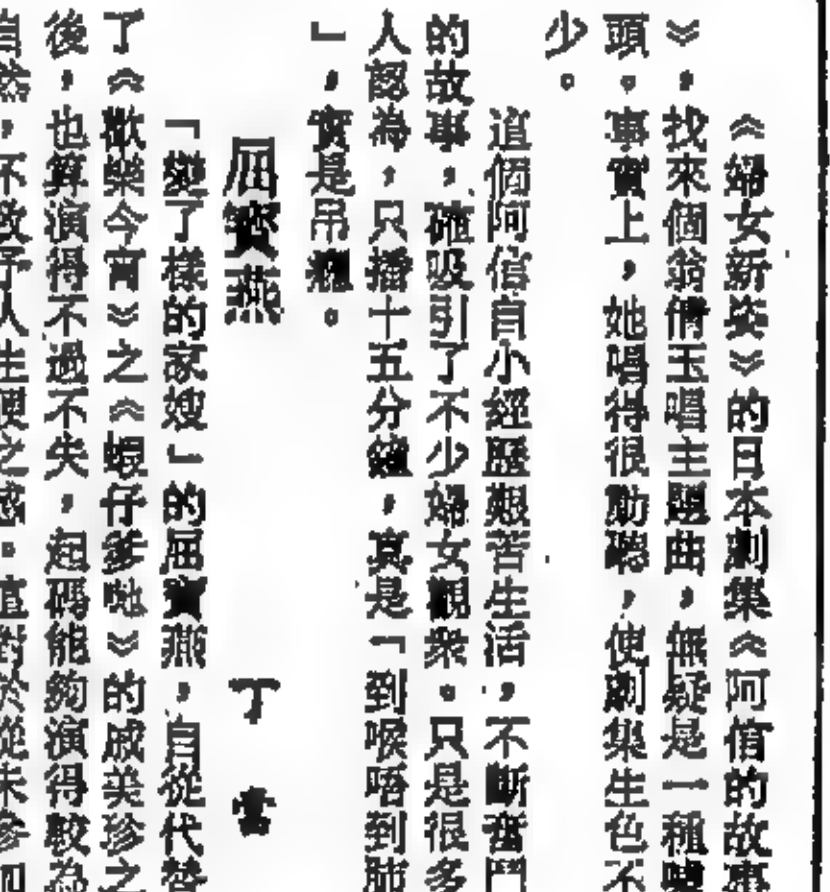 《婦女新姿》的日本劇集《阿信的故事
》，找來個翁倩玉唱主題曲，無疑是一種噱
頭。事實上，她唱得很動聽，使劇集生色不
少。
這個阿信自小經歷艱苦生活，不斷奮鬥
的故事，確吸引了不少婦女觀衆。只是很多
人認為，只播十五分鐘，真是「到喉唔到肺
」，實是吊癮。
屈寶燕
丁當
「變了樣的家嫂」的屈寶燕，自從代替
了《歡樂今宵》之《蝦仔爹哋》的戚美珍之
後，也算演得不過不失，起碼能夠演得較為
自然，不致予人生硬之感。這對於從未參加